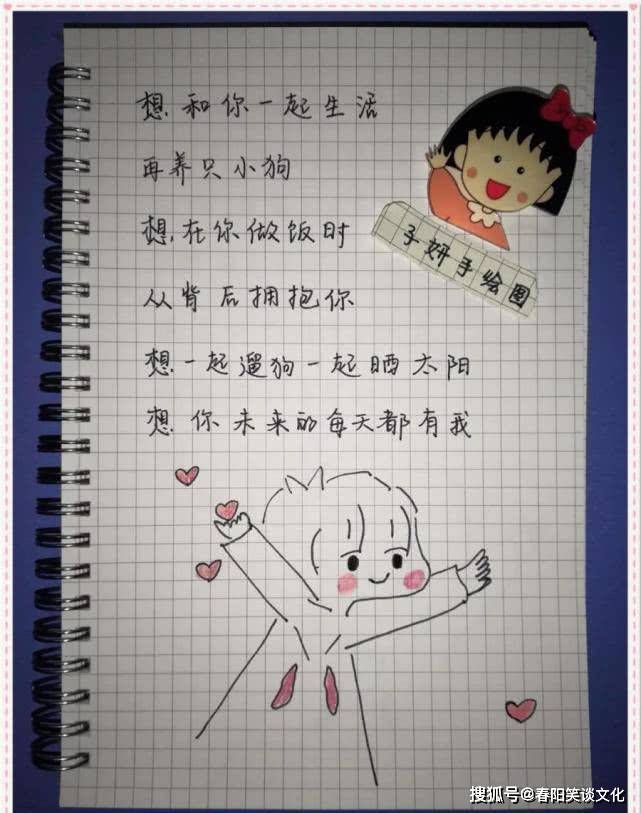 想和你一起生活
再养只小狗
想在你做饭时
从背后拥抱你
想一起遛狗一起晒太阳
想你未来的每天都有我
子妍手绘图
搜狐号@春阳笑谈文化